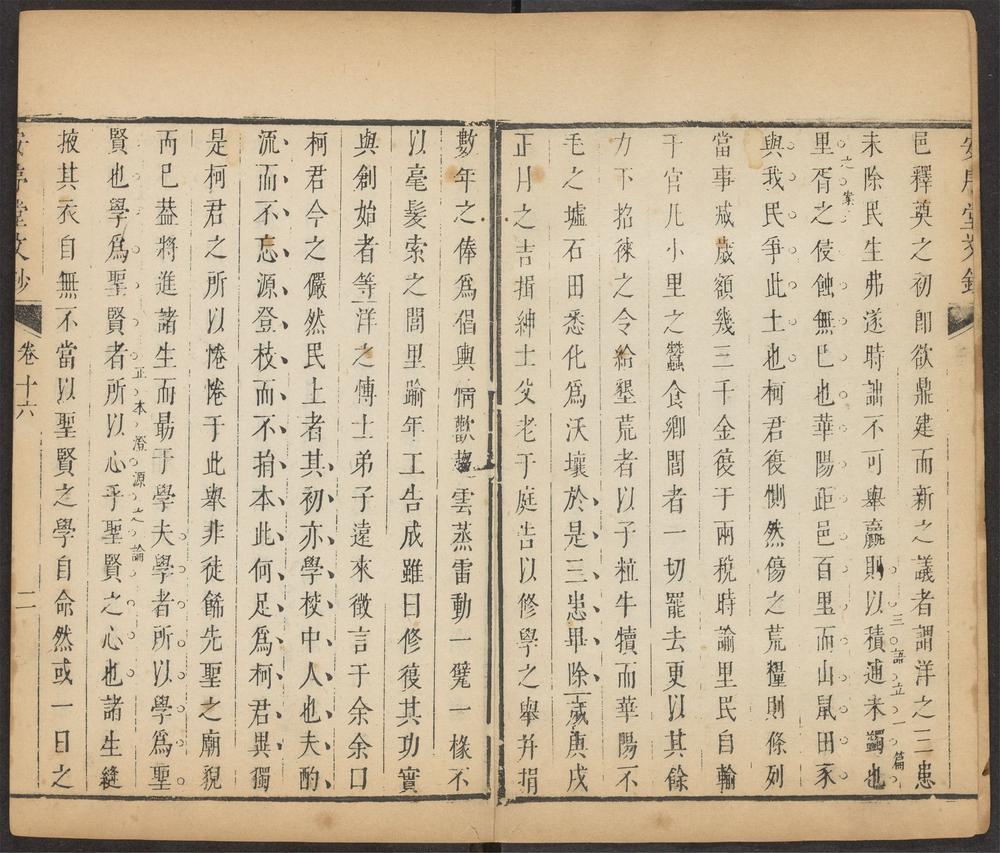 邑釋奠之初卽欲鼎建而新之議者謂洋之三患
未除民生弗遂時詘不可舉嬴則以積逋未蠲也
三語立一篇
之案
里胥之侵蝕無已也華陽距邑百里而山鼠田豕
與我民爭此土也柯君復惻然傷之荒糧則條列
當事减歲額幾三千金復于兩稅時諭里民自輸
于官凡小里之蠶食鄉閭者一切罷去更以其餘
力下招徠之令給墾荒者以子粒牛犢而華陽不
毛之墟石田悉化爲沃壤於是三患畢除歲庚戌
正月之吉揖紳士父老于庭告以修學之舉并捐
數年之俸爲倡輿情歡趨雲蒸雷動一甓一椽不
以毫髮索之閭里踰年工告成雖曰修復其功實
與創始者等洋之博士弟子遠來徵言于余余曰
柯君今之儼然民上者其初亦學校中人也夫酌
流而不忘源登枝而不捐本此何足爲柯君異獨
是柯君之所以惓惓于此舉非徒餙先聖之廟貌
而已葢將進諸生而勗于學夫學者所以學爲聖
正本澄源之論
賢也學爲聖賢者所以心乎聖賢之心也諸生縫
掖其衣自無不當以聖賢之學自命然或一日之
堂文鈔
卷十六
二